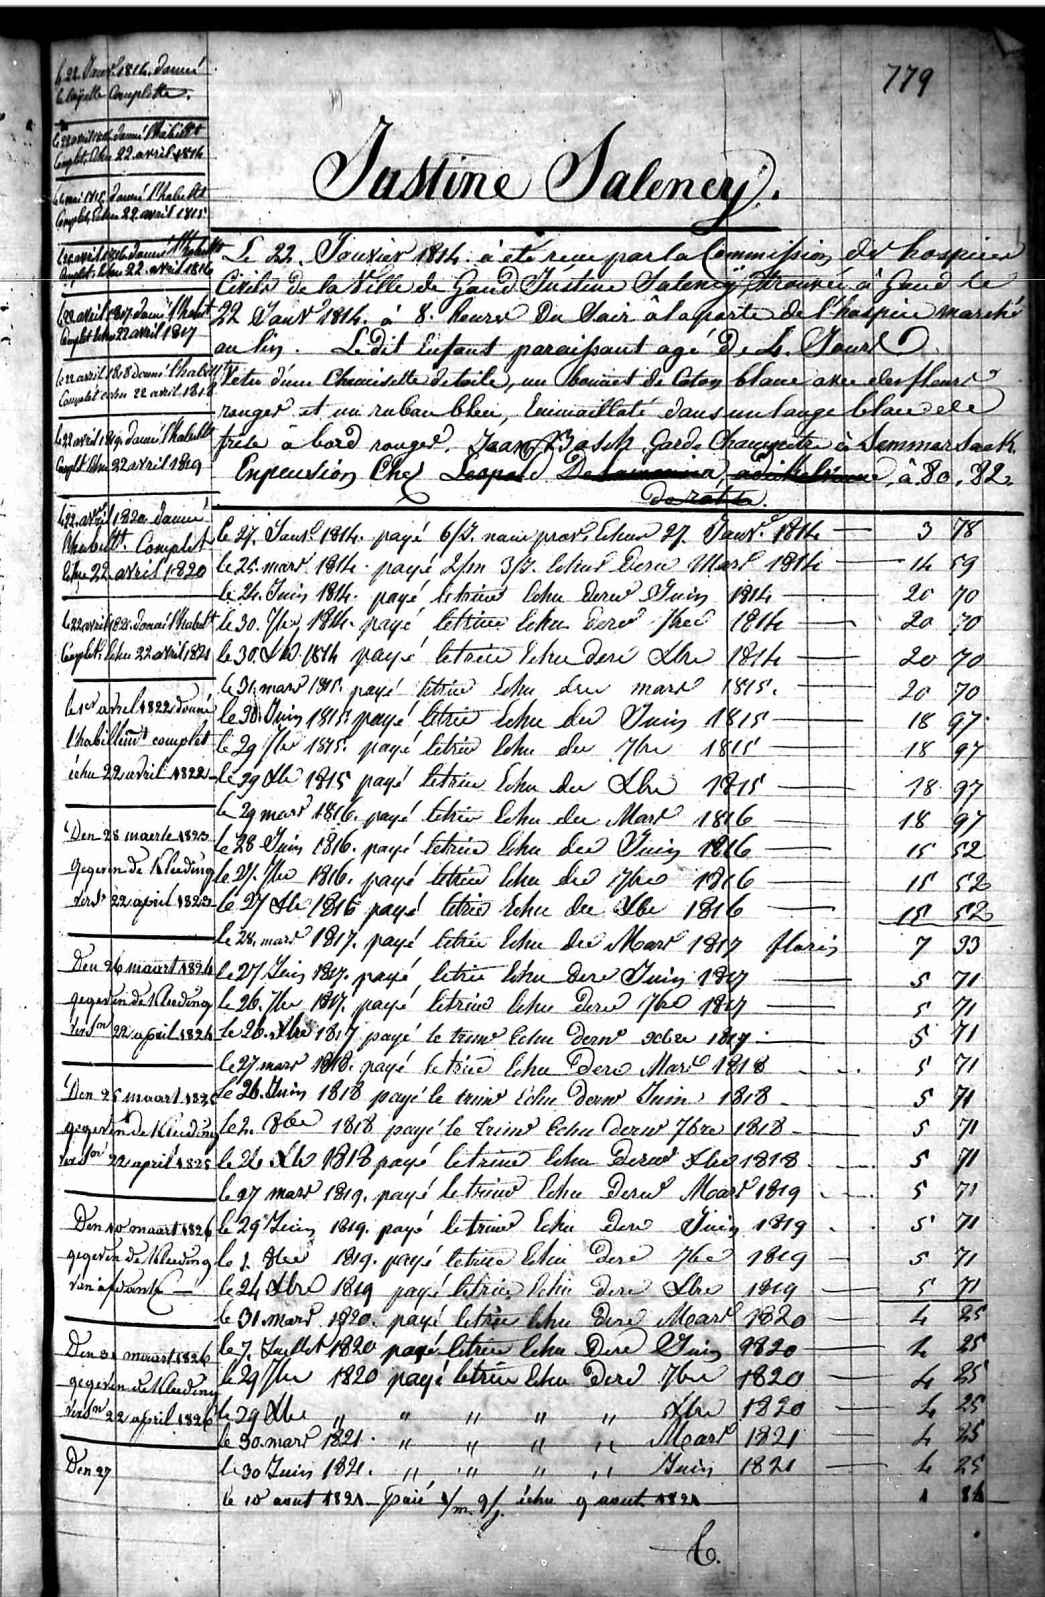 779
Justine Saleney.
Le 22. Janvier 1814. à été reçue par la Commission des hospices
Civils de la Ville de Gand Justine Saleney, trouvée à Gand le
22 Janvr 1814. à 8. heures du Soir à la porte de l'hospice marché
au lin. Ledit Enfant paraissant agé de 4. Jours
Vetu d'une Chemisette de toile, un bonnet de Coton blanc avec des fleurs
rouges et un ruban bleu, Emmailloté dans un lange blanc de
à bord rouges. Garde Champetre à Lemmersaek.
En pension Chez Leopold à 80. 82
le 27. Janvr 1814. payé 6/J. Echus 27. Janvr 1814 3 78
le 25. mars 1814. payé Mars 1814 14 59
le 24. Juin 1814. payé letrim Echu derer Juin 1814 20 70
le 30. 7bre 1814. payé letrim Echu derer 7bre 1814 20 70
le 30. Xbr 1814 payé letrim Echu dere Xbre 1814 20 70
le 31. mars 1815. payé letrim Echu der mars 1815. 20 70
le 30. Juin 1815. payé letrim Echu der Juin 1815 18 97
le 29 7br 1815. payé letrim Echu der 7bre 1815 18 97
le 29 Xbr 1815 payé letrim Echu der Xbre 1815 18 97
le 29 mars 1816. payé letrim Echu der Mars 1816 18 97
le 28 Juin 1816. payé letrim Echu der Juin 1816 15 52
le 27. 7br 1816. payé letrim Echu der 7bre 1816 15 52
le 27 Xbr 1816 payé letrim Echu der Xbr 1816 15 52
le 28. mars 1817. payé letrim Echu der Mars 1817 florin 7 33
le 27 Juin 1817. payé letrim Echu dere Juin 1817 5 71
le 26. 7br 1817. payé letrim Echu dere 7bre 1817 5 71
le 26. Xbre 1817 payé le trimr Echu dernr Xbre 1817 5 71
le 27 mars 1818. payé letrim Echu dere Mars 1818 5 71
le 26. Juin 1818 payé le trimr Echu dernr Juin 1818 5 71
le 2. 8bre 1818 payé le trimr Echu dernr 7bre 1818 5 71
le 24 Xbr 1818 payé letrim Echu derer Xbre 1818 5 71
le 27 mars 1819. payé letrimr Echu derer Mars 1819 5 71
le 29 Juin 1819. payé letrimr Echu dere Juin 1819 5 71
le 1. 8bre 1819. payé letrim Echu dere 7bre 1819 5 71
le 24 Xbre 1819 payé letrim Echu dere Xbre 1819 5 71
le 31. mars 1820. payé letrim Echu dere Mars 1820 4 25
le 7. Juillet 1820 payé letrim Echu dere Juin 1820 4 25
le 29 7br 1820 payé letrim Echu dere 7bre 1820 4 25
le 29 Xbr " " " " " Xbre 1820 4 25
le 30. mars 1821. " " " " Mars 1821 4 25
le 30 Juin 1821. " " " " Juin 1821 4 25
le 10 aout 1821 Paié échu 9 aout 1821 1 84
le 22. Janvr 1814. donné
la layette Complette.
le 22 avril 1814 donné l'habilt
Complet, Echu 22. avril 1814
donné l'habilt
Complet Echu 22 avril 1815
le 22 avril 1816 donné l'habilt
Complet Echu 22 avril 1816
le 22 avril 1817 donné l'habilt
Complet Echu 22 avril 1817
le 22 avril 1818 donné l'habilt
Complet echu 22 avril 1818
le 22 avril 1819. donné l'habilt
Complet Echu 22 avril 1819
le 22. avril 1820. donné
l'habillt. Complet
Echu 22 avril 1820
le 22 avril 1821. donné l'habilt
Complet. Echu 22 avril 1821
le 1er avril 1822 donné
l'habillemt complet
échu 22 avril 1822
Den 28 maerte 1823
gegeven de Kleeding
versn 22 april 1823
Den 26 maart 1824
gegeven de Kleeding
versn 22 april 1824
Den 25 maart 1825
gegeven de Kleeding
versn 22 april 1825
Den 10 maart 1826
gegeven de Kleeding
Den 31 maart 1826
gegeven de Kleeding
versn 22 april 1826
Den 27